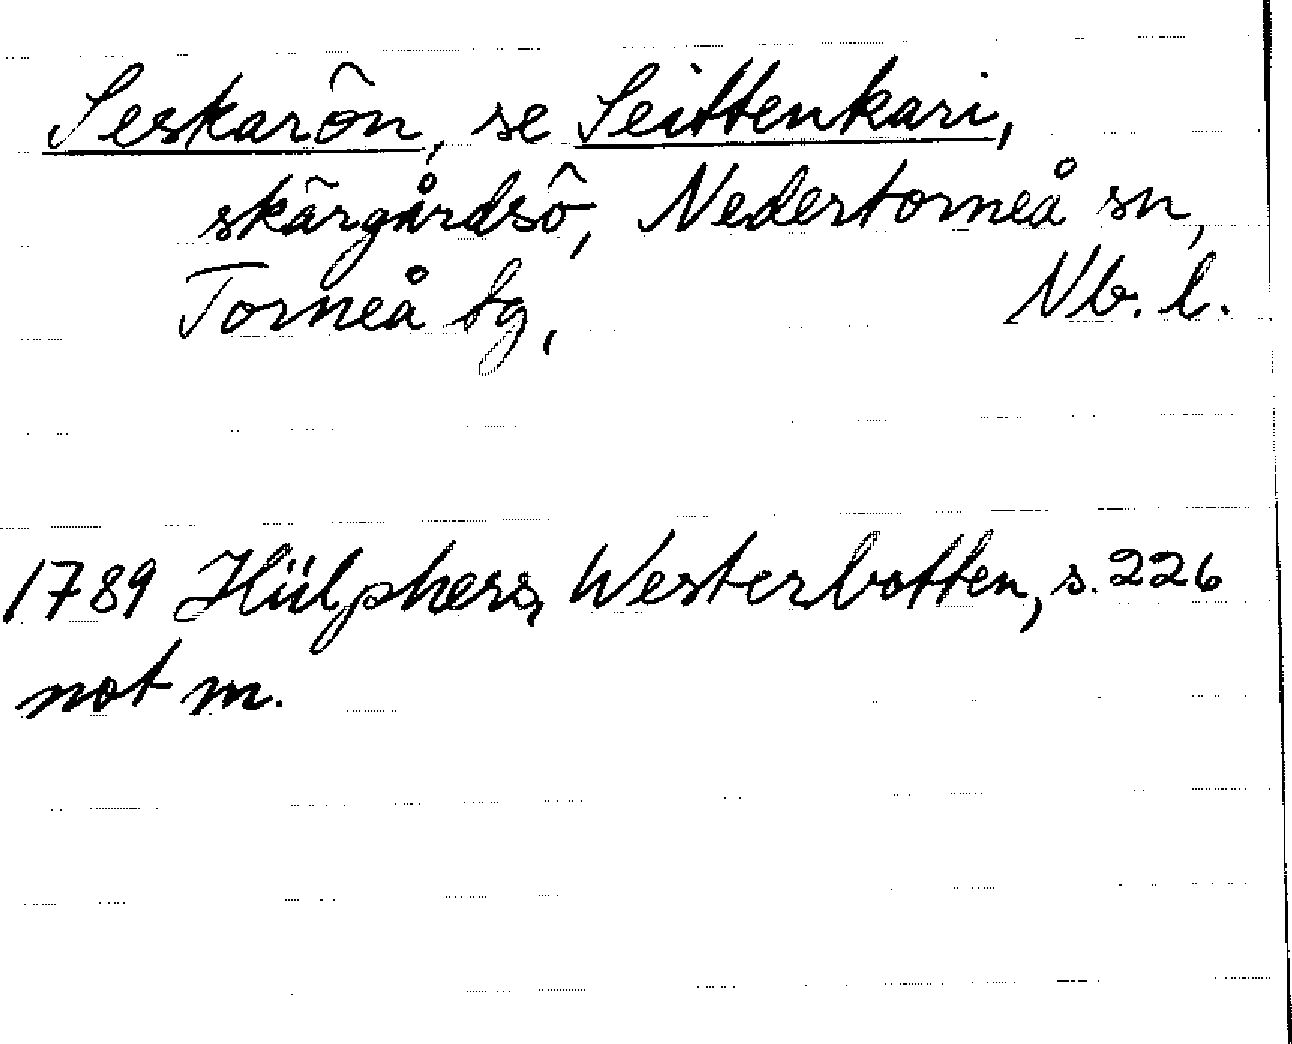 Seskarön, se Seittenkari,
skärgårdsö, Nedertorneå sn,
Torneå tg, Nb. l.
1789 Hülphers, Westerbotten, s. 226
not m.